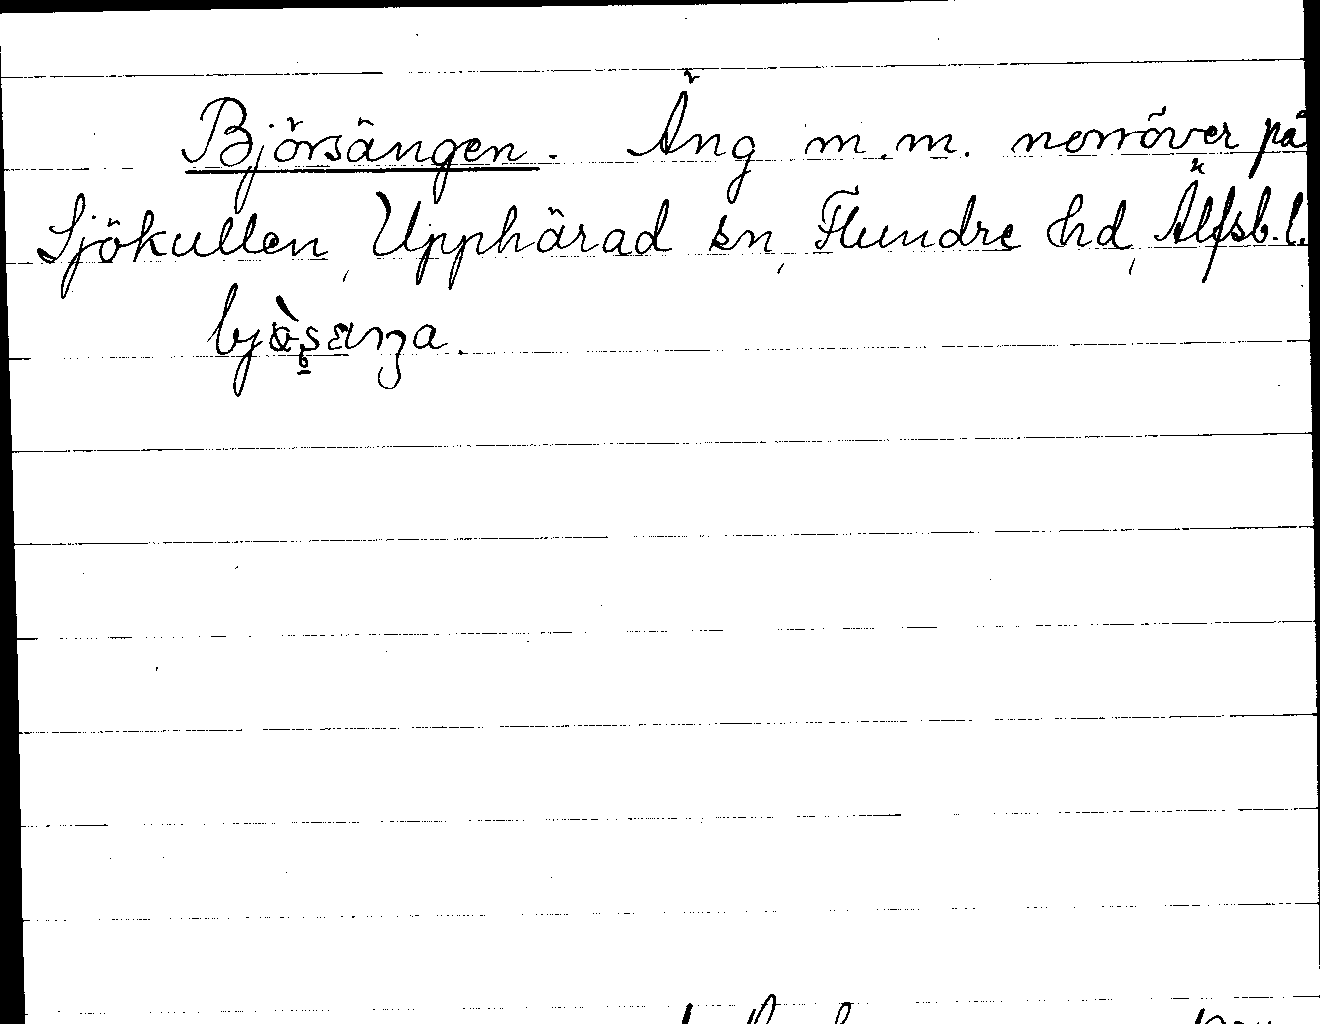 Björsängen. Äng m.m. norröver på
Sjökullen, Upphärad sn, Flundre hd, Älfsb. l.